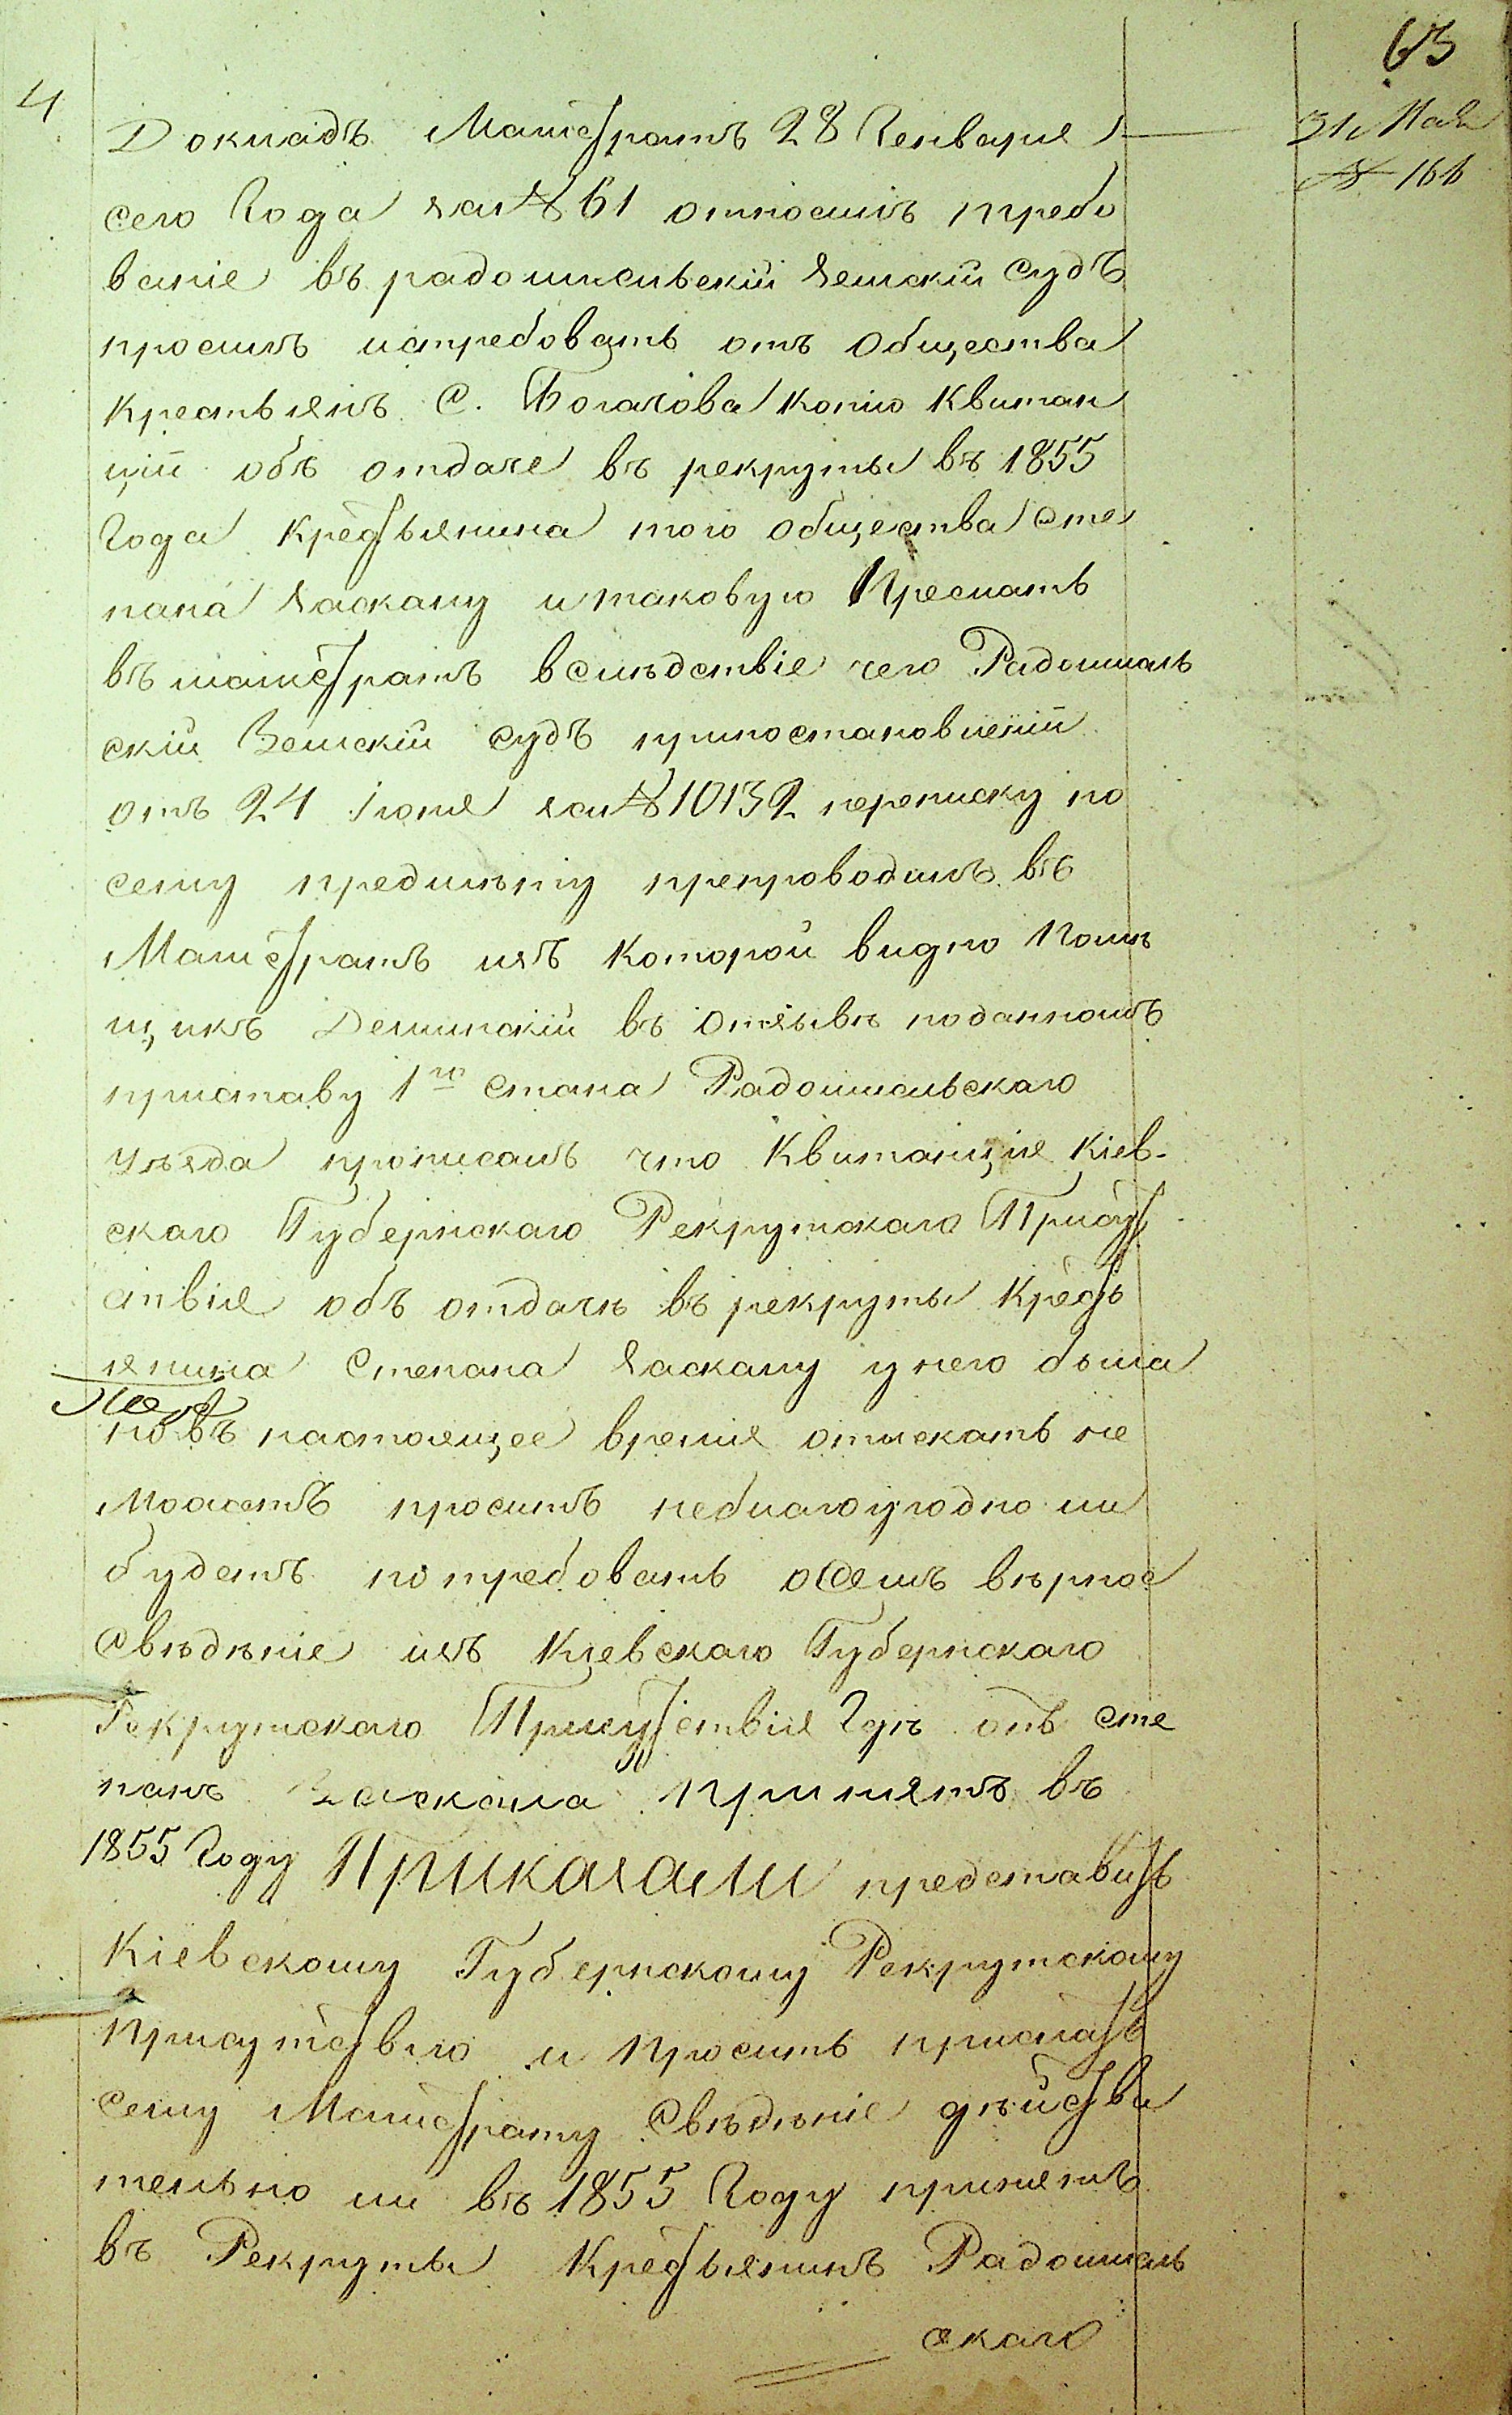 63
4
31 Мая
№ 166
Докладъ Магистратъ 28 Генваря
сего Года за №61 относилъ требо
ваніе въ радомысльскій земскій судъ
просилъ истребовать отъ Общества
крестьянъ С. Богачова копію Квитан
ціи объ отдаче въ рекруты въ 1855
Года крестьянина того общества Сте
пана Заскалу и таковую Преслать
въ магистратъ вслѣдствіе чего Радомысль
скій Земскій судъ припостановленіи
отъ 24 Іюня за №10132 переписку по
сему предмѣту препроводилъ въ
Магистратъ изъ Которой видно Помѣ
щикъ Деминскій въ отзывѣ поданномъ
приставу 1го стана Радомысльскаго
уѣзда прописалъ что Квитанція Кіев-
скаго Губернскаго Рекрутскаго Присут
ствія объ отдачѣ въ рекруты Кресть
янина Степана Заскалу у него была
но въ настоящее время отискать не
можетъ проситъ неблагоугодно ли
будетъ потребовать осемъ вѣрное
Свѣдѣніе изъ Кіевскаго Губернскаго
Рекрутскаго Присутствія Гдѣ онъ Сте
панъ Заскала принятъ въ
1855 Году Приказали представить
Кіевскому Губернскому Рекрутскому
Присутствію и Просить прислать
сему Магистрату Свѣдѣніе дѣйстви
тельно ли въ 1855 Году принятъ
въ Рекруты Крестьянинъ Радомысль
скаго